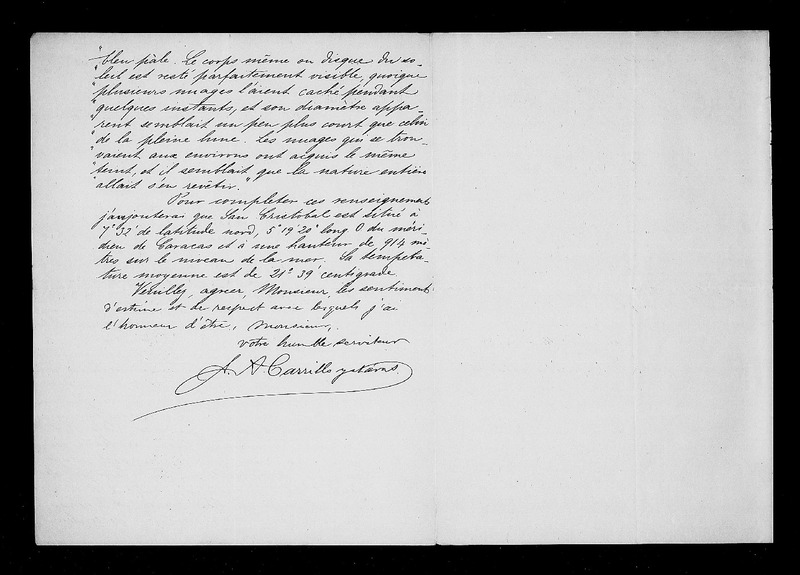 "bleu pâle. Le corps même ou disque du so-
"leil est resté parfaitement visible, quoique
"plusieurs nuages l'aient caché pendant
"quelques instants, et son diamètre appa-
"rent semblait un peu plus court que celui
"de la pleine lune. Les nuages qui se trou-
"vaient aux environs ont acquis le même
"teint, et il semblait que la nature entière
"allait s'en revêtir."
Pour completer ces renseignements
j'ajouterai que San Cristobal est situé à
7° 32' de latitude nord, 5° 19' 20" long O du méri-
dien de Caracas et à une hauteur de 914 mè-
tres sur le niveau de la mer. Sa tempéra-
ture moyenne est de 21° 39' centigrade.
Veuillez, agréer, Monsieur, les sentiments
d'estime et de respect avec lesquels j'ai
l'honneur d'être, Monsieur,
votre humble serviteur
A. Carrillo y